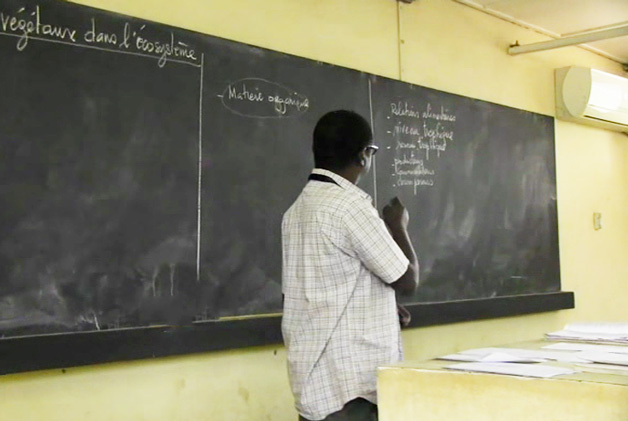 végétaux dans l'écosystème
- Matière organique
- Relations alimentaires
- niveau trophique
- producteurs
- consommateurs